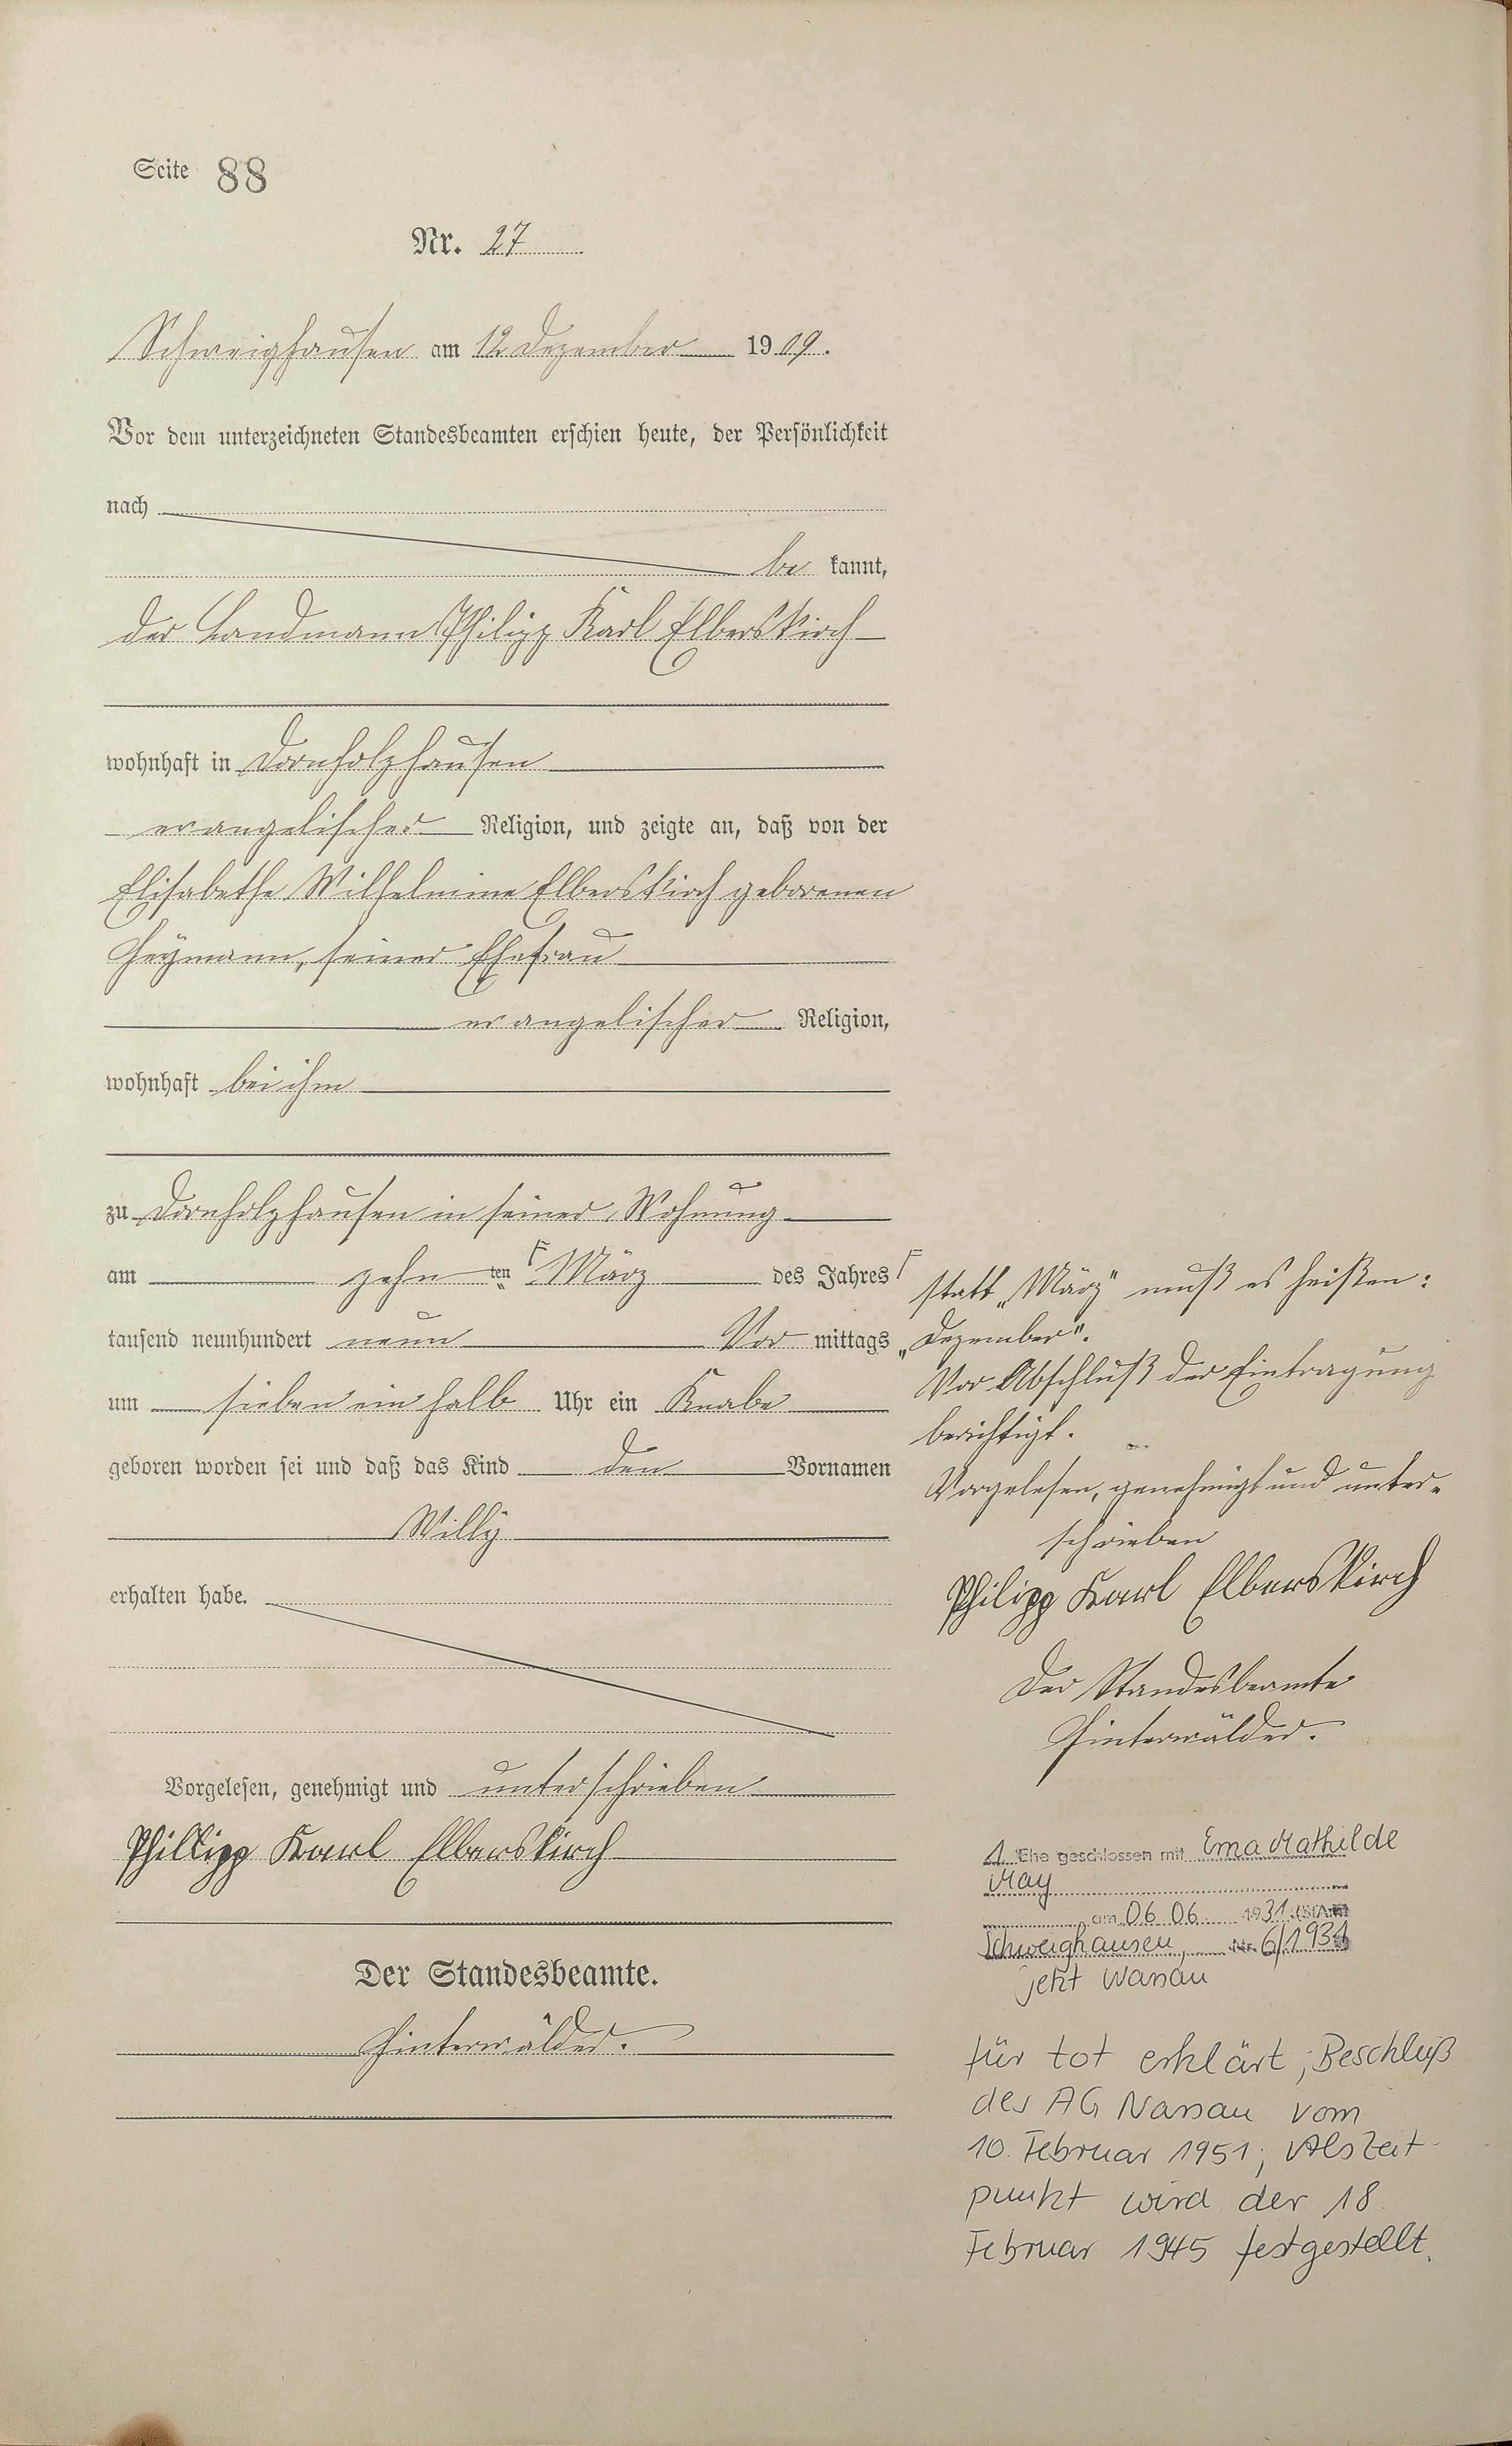 Seite 88
Nr. 27
Schweighausen am 12 Dezember 1909.
Vor dem unterzeichneten Standesbeamten erschien heute, der Persönlichkeit
nach
be kannt,
der Landmann Philipp Karl Elberskirch
wohnhaft in Dornholzhausen
evangelischer Religion, und zeigte an, daß von der
Elisabethe Wilhelmine Elberskirch geborenen
Heymann, seiner Ehefrau
evangelischer Religion,
wohnhaft bei ihm
zu Dornholzhausen in seiner Wohnung
am zehn ten ┌ März des Jahres
tausend neunhundert neun Vor mittags
um sieben ein halb Uhr ein Knabe
geboren worden sei und daß das Kind den Vornamen
Willy
erhalten habe.
Vorgelesen, genehmigt und unterschrieben
Phillipp Karl Elberskirch
Der Standesbeamte.
Hinterwälder.
┌ statt „März" muß es heißen:
„Dezember".
Vor Abschluß der Eintragung
berichtigt.
Vorgelesen, genehmigt und unter-
schrieben
Philipp Karl Elberskirch
Der Standesbeamte
Hinterwälder.
1. Ehe geschlossen mit Erna Mathilde
May
am 06.06. 1931 (StAmt
Schweighausen, Nr. 6/1931
jetzt Nassau
für tot erklärt; Beschluß
des AG Nassau vom
10. Februar 1951; Als Zeit-
punkt wird der 18.
Februar 1945 festgestellt.